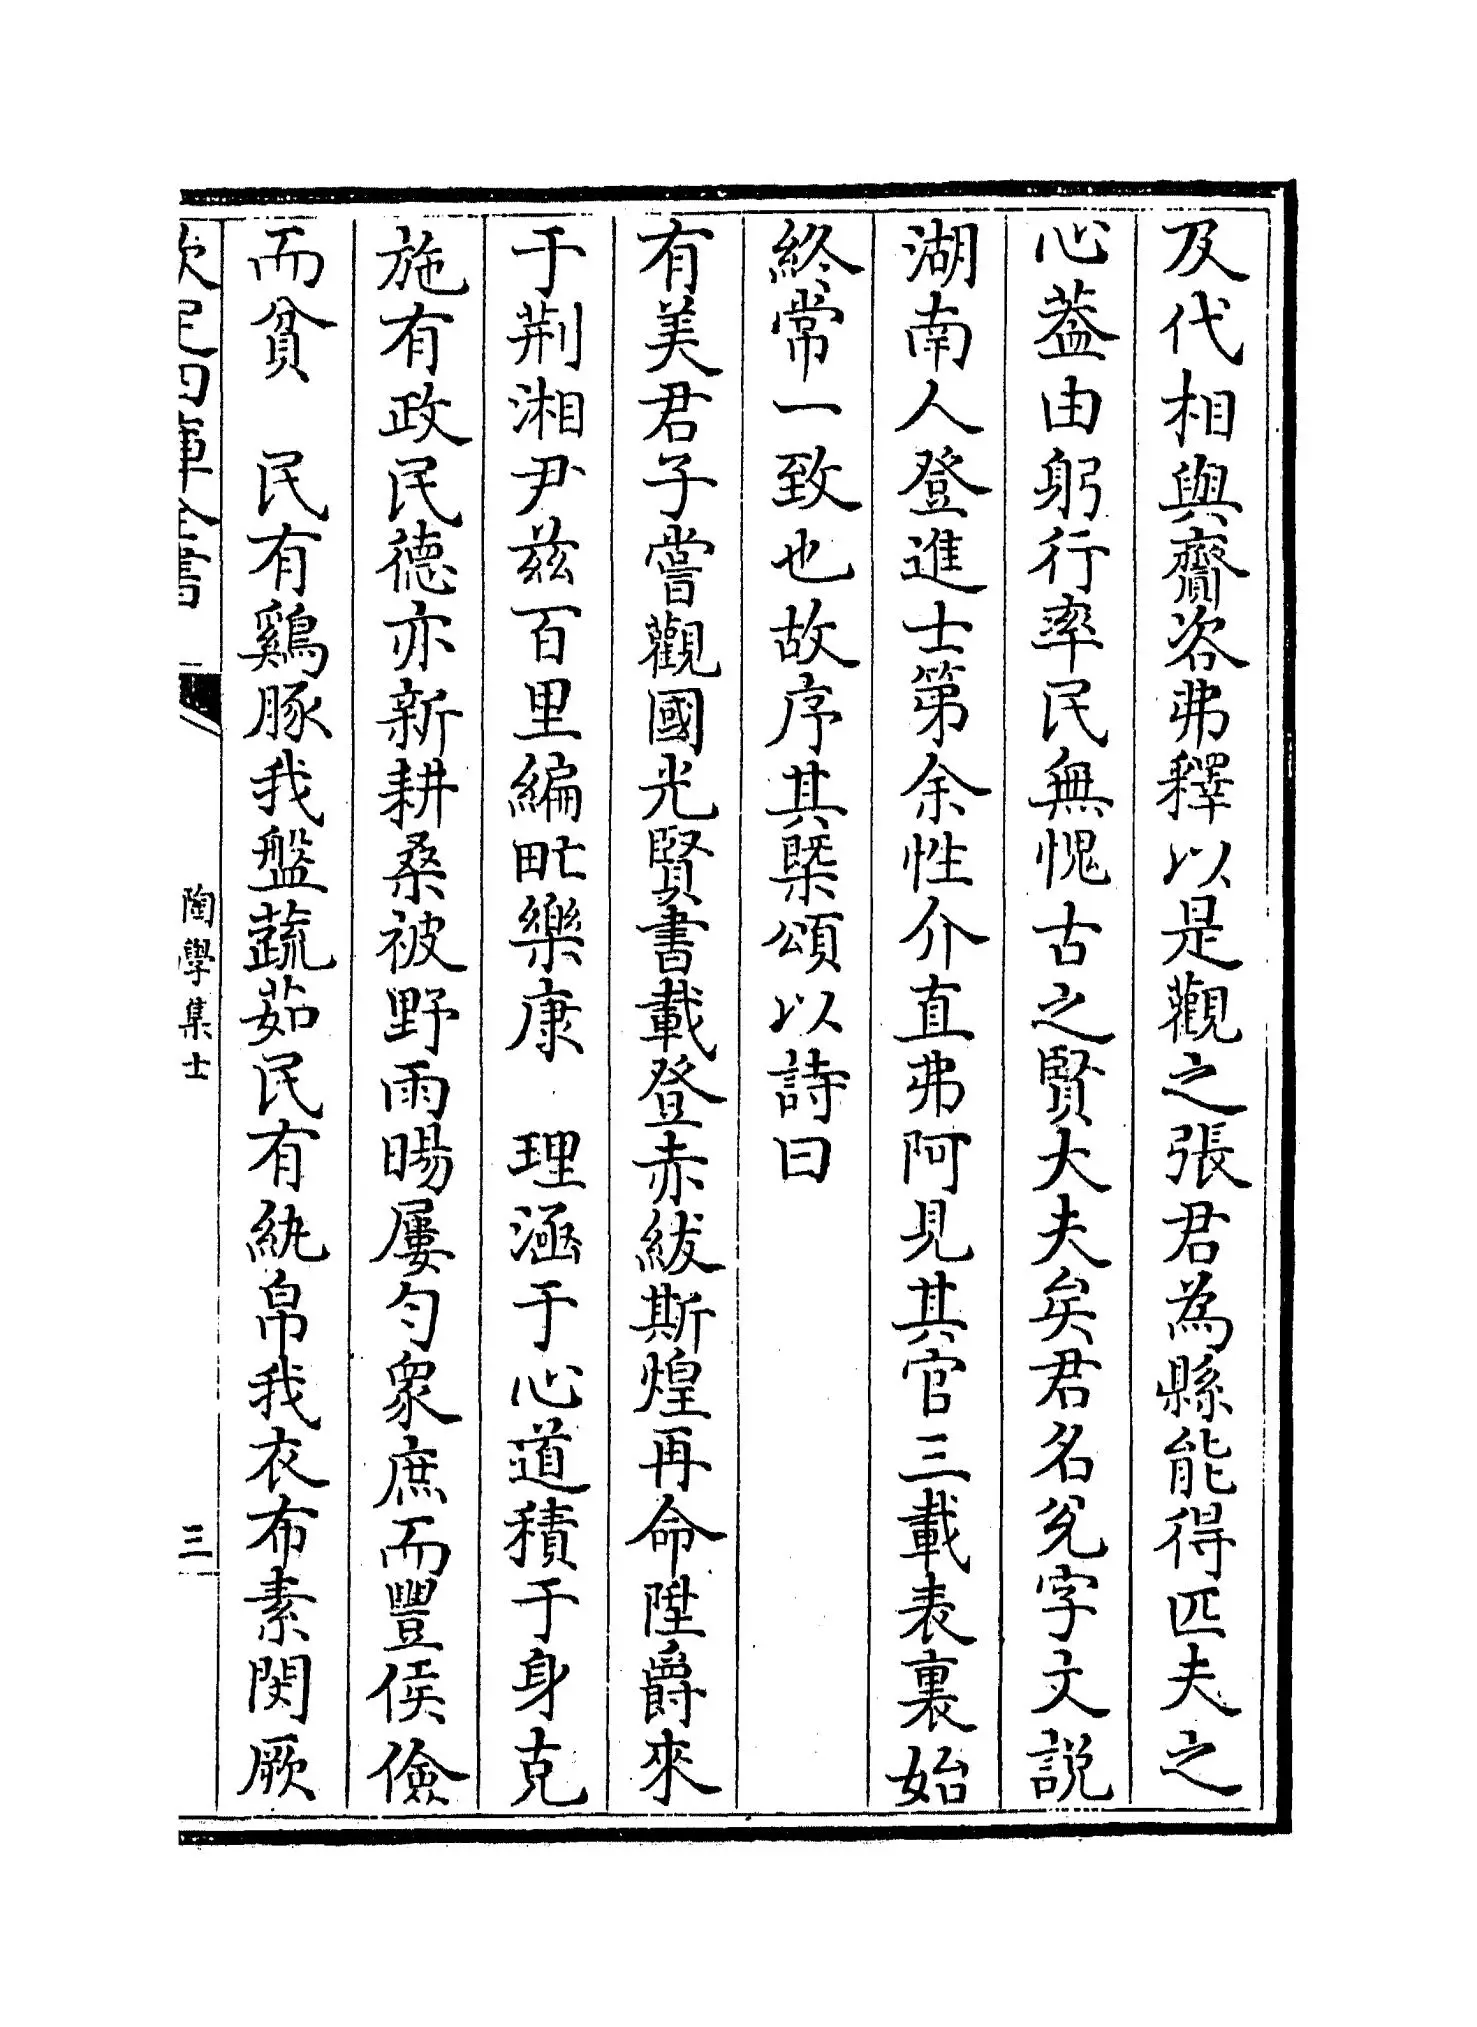 及代相與齎咨弗釋以是觀之張君為縣能得匹夫之
心葢由躬行率民無愧古之賢大夫矣君名兊字文説
湖南人登進士第余性介直弗阿見其官三載表裏始
終常一致也故序其槩頌以詩曰
有美君子嘗觀國光賢書載登赤紱斯煌再命陞爵來
于荆湘尹兹百里編甿樂康　理涵于心道積于身克
施有政民德亦新耕桑被野雨暘屢勻衆庶而豐侯儉
而貧　民有鷄豚我盤蔬茹民有紈帛我衣布素閔厥
欽定四庫全書
陶學士集
三